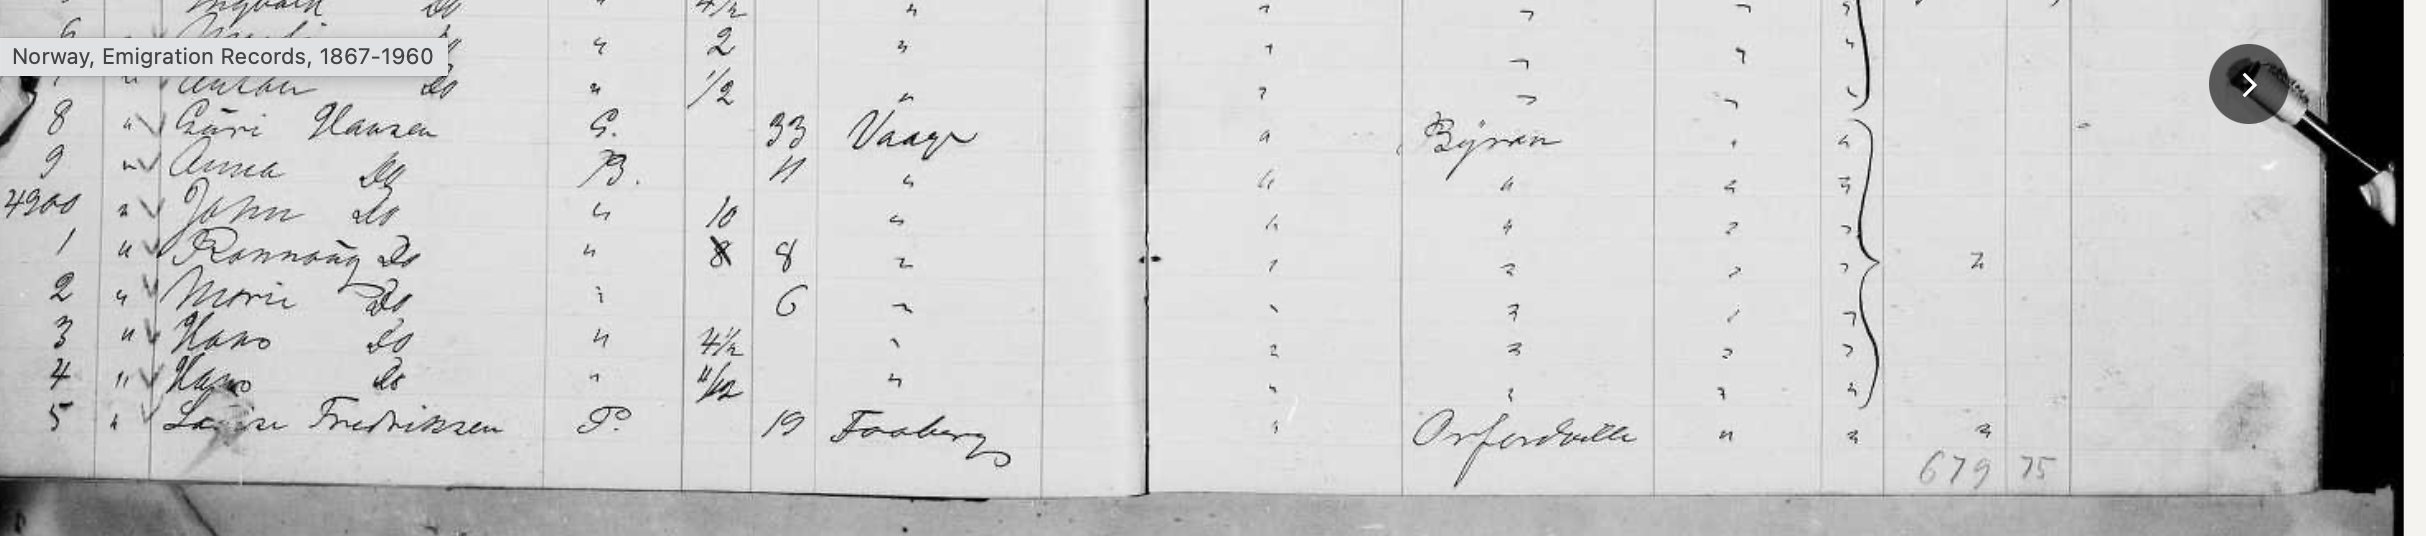 Do " 4/12 " " " " "
6 " 2 " " " " "
Norway, Emigration Records, 1867-1960
Do " 1/2 " " " " "
8 " Guri Hansen G. 33 Vaage " Byran " "
9 " Anna Do B. 11 " " " " "
4900 " John Do " 10 " " " " "
1 " Ronnoŭg Do " 8 8 " " " " " "
2 " Marie Do " 6 " " " " "
3 " Hans Do " 4 1/2 " " " " "
4 " Hans Do " 11/12 " " " " "
5 " Fredriksen P. 19 Faaberg " Orfordville " " "
679 75